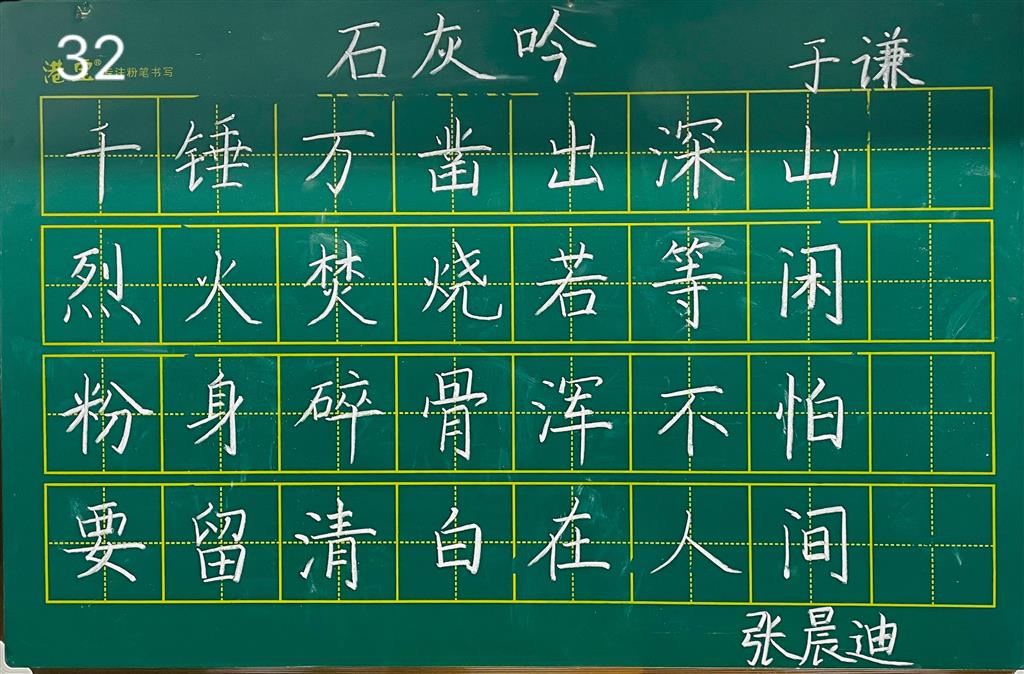 32
石灰吟
于谦
千锤万凿出深山
烈火焚烧若等闲
粉身碎骨浑不怕
要留清白在人间
张晨迪